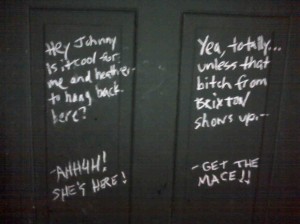 Hey Johnny
Is it cool for
me and heather
to hang back
here?
-AHHH!
SHE'S HERE!
Yea, totally...
unless that
bitch from
Brixton
shows up...
-GET THE
MACE!!